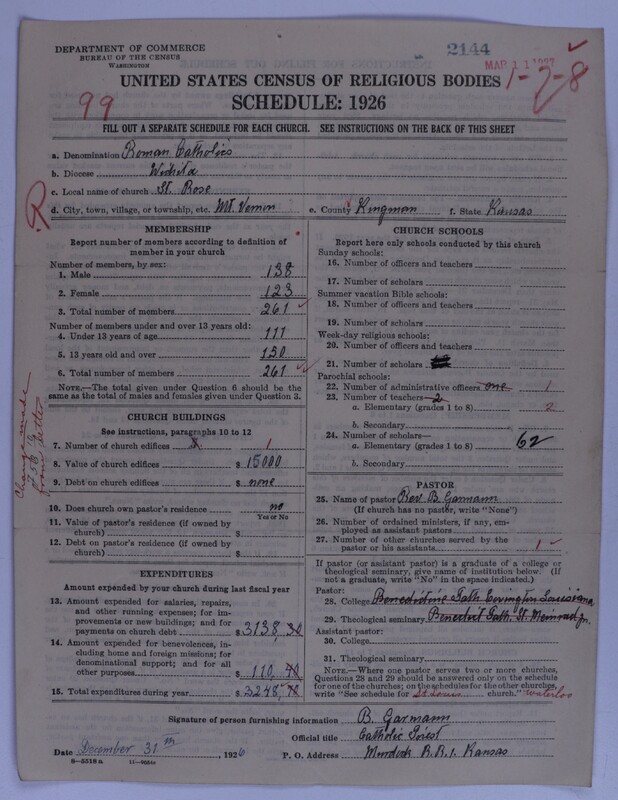 DEPARTMENT OF COMMERCE
BUREAU OF THE CENSUS
WASHINGTON
2144
MAR 11 1927
1-7-8
UNITED STATES CENSUS OF RELIGIOUS BODIES
SCHEDULE: 1926
99
FILL OUT A SEPARATE SCHEDULE FOR EACH CHURCH. SEE INSTRUCTIONS ON THE BACK OF THIS SHEET
a. Denomination Roman Catholic
b. Diocese Wichita
c. Local name of church St. Rose
d. City, town, village, or township, etc. Mt. Vernon e. County Kingman f. State Kansas
R
MEMBERSHIP
Report number of members according to definition of
member in your church
Number of members, by sex:
1. Male 138
2. Female 123
3. Total number of members 261
Number of members under and over 13 years old:
4. Under 13 years of age 111
5. 13 years old and over 150
6. Total number of members 261
NOTE.—The total given under Question 6 should be the
same as the total of males and females given under Question 3.
CHURCH BUILDINGS
See instructions, paragraphs 10 to 12
7. Number of church edifices 1
8. Value of church edifices $ 15000
9. Debt on church edifices $ none
10. Does church own pastor's residence no
Yes or No
11. Value of pastor's residence (if owned by
church) $
12. Debt on pastor's residence (if owned by
church) $
Change made
from letter
EXPENDITURES
Amount expended by your church during last fiscal year
13. Amount expended for salaries, repairs,
and other running expenses; for im-
provements or new buildings; and for
payments on church debt $ 3138,30
14. Amount expended for benevolences, in-
cluding home and foreign missions; for
denominational support; and for all
other purposes 110,40
15. Total expenditures during year $ 3248,70
CHURCH SCHOOLS
Report here only schools conducted by this church
Sunday schools:
16. Number of officers and teachers
17. Number of scholars
Summer vacation Bible schools:
18. Number of officers and teachers
19. Number of scholars
Week-day religious schools:
20. Number of officers and teachers
21. Number of scholars
Parochial schools:
22. Number of administrative officers one 1
23. Number of teachers— 2
a. Elementary (grades 1 to 8) 2
b. Secondary
24. Number of scholars—
a. Elementary (grades 1 to 8) 62
b. Secondary
PASTOR
25. Name of pastor Rev. B. Garmann
(If church has no pastor, write "None")
26. Number of ordained ministers, if any, em-
ployed as assistant pastors
27. Number of other churches served by the
pastor or his assistants 1
If pastor (or assistant pastor) is a graduate of a college or
theological seminary, give name of institution below. (If
not a graduate, write "No" in the space indicated.)
Pastor:
28. College Benedictine Fath. Covington Louisiana
29. Theological seminary Benedict Fath. St. Meinrad
Assistant pastor:
30. College
31. Theological seminary
NOTE.—Where one pastor serves two or more churches,
Questions 28 and 29 should be answered only on the schedule
for one of the churches; on the schedules for the other churches,
write "See schedule for St Louis church." Waterloo
Signature of person furnishing information B. Garmann
Official title Catholic Priest
Date December 31th, 1926 P. O. Address Murdock R.R.1. Kansas
8-5518 a